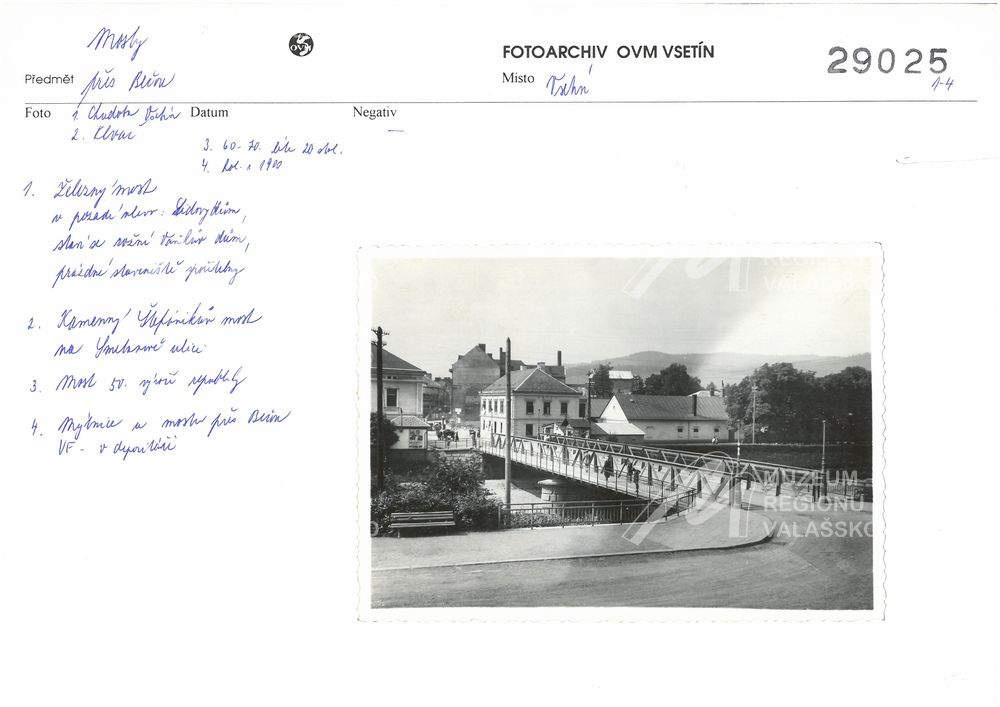 Mosty
OVM
FOTOARCHIV OVM VSETÍN
29025
Předmět přes Bečvu
Místo Vsetín
1-4
Foto 1. Chudoba Vsetín Datum Negativ
2. Klvač
3. 60-70. léta 20 stol.
4. kol. r. 1900
1. Železný most
v pozadí vlevo: dům,
nárožní Vaňkův dům,
prázdné staveniště spořitelny
2. Kamenný Štefánikův most
na Smetanově ulici
3. Most 50. výročí republiky
4. Mýtnice u mostu přes Bečvu
VF - v depozitáři
REGIONU
VALAŠSKO
MUZEUM
REGIONU
VALAŠSKO